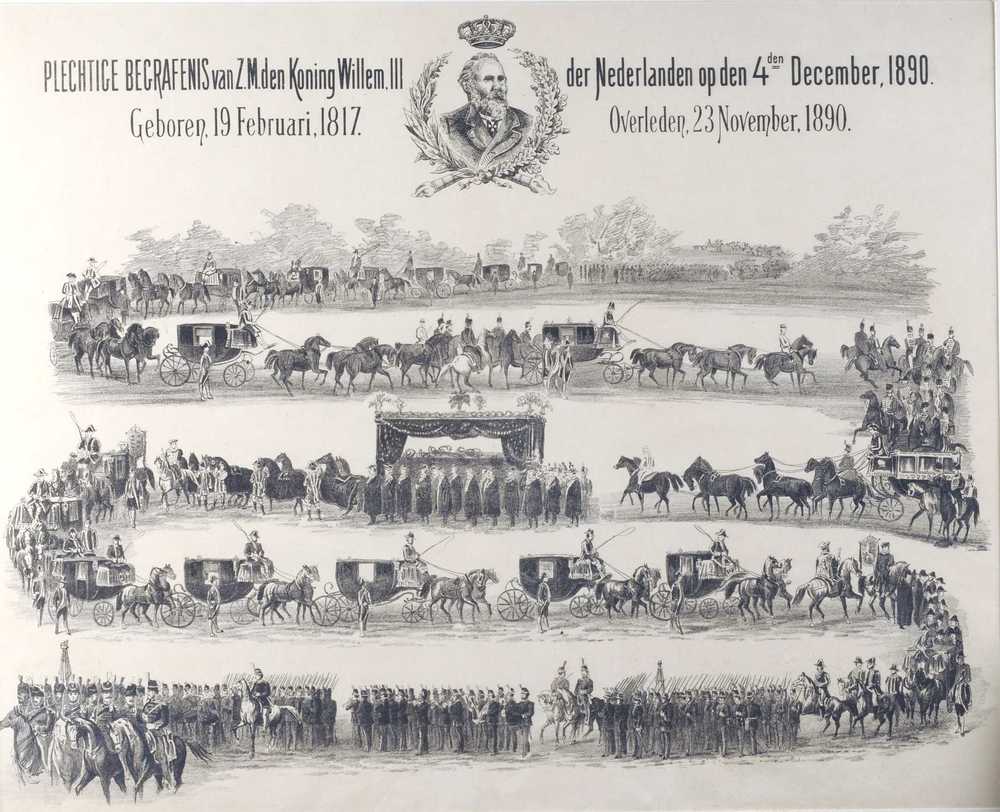 PLECHTIGE BEGRAFENIS van Z.M. den Koning Willem. III der Nederlanden op den 4den December, 1890.
Geboren, 19 Februari, 1817. Overleden, 23 November, 1890.